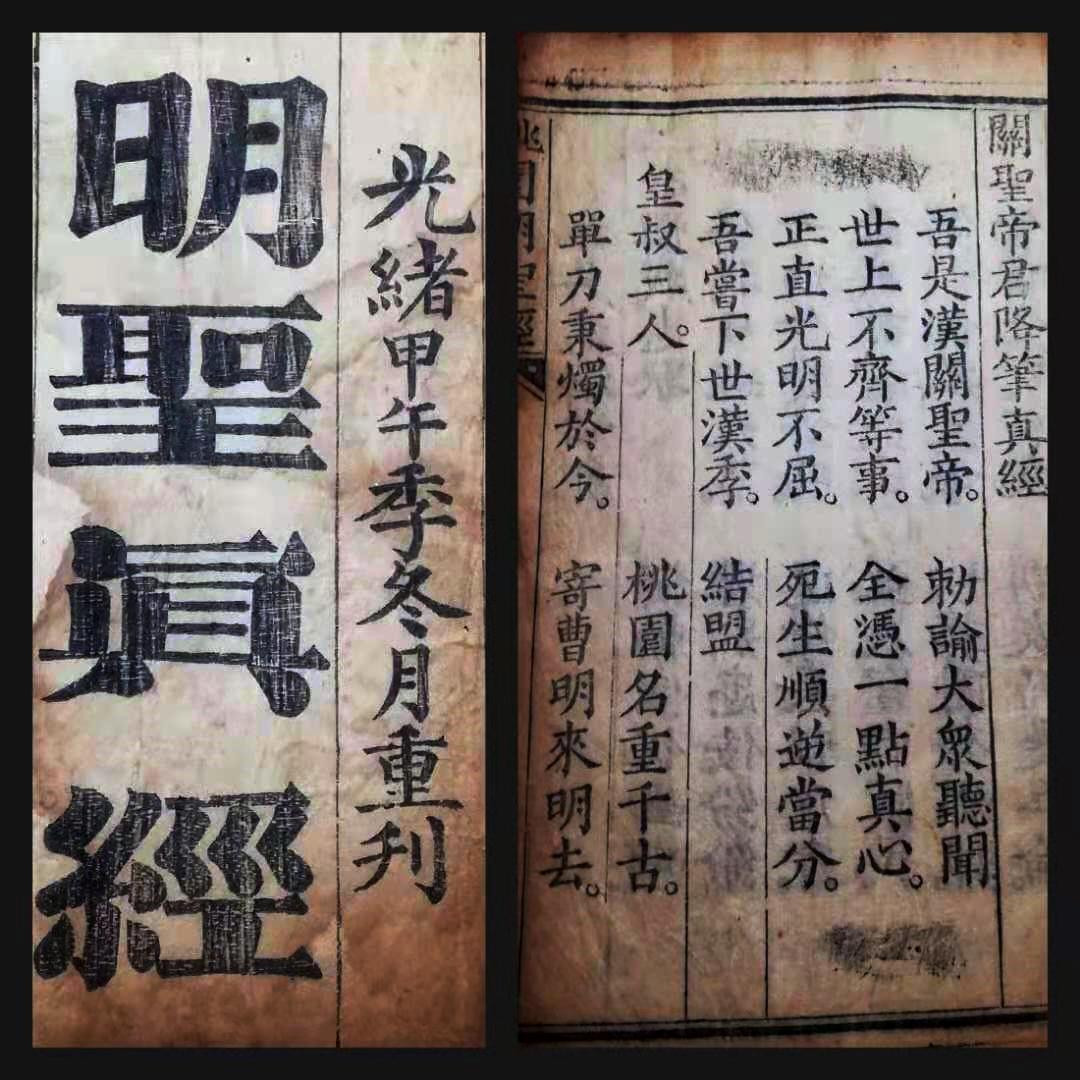 光緒甲午季冬月重刋
明聖眞經
關聖帝君降筆真經
吾是漢關聖帝。勅諭大眾聽聞
世上不齊等事。全憑一點真心。
正直光明不屈。死生順逆當分。
吾嘗下世漢季。結盟
皇叔三人。桃園名重千古。
單刀秉燭於今。寄曹明來明去。
桃園明聖經